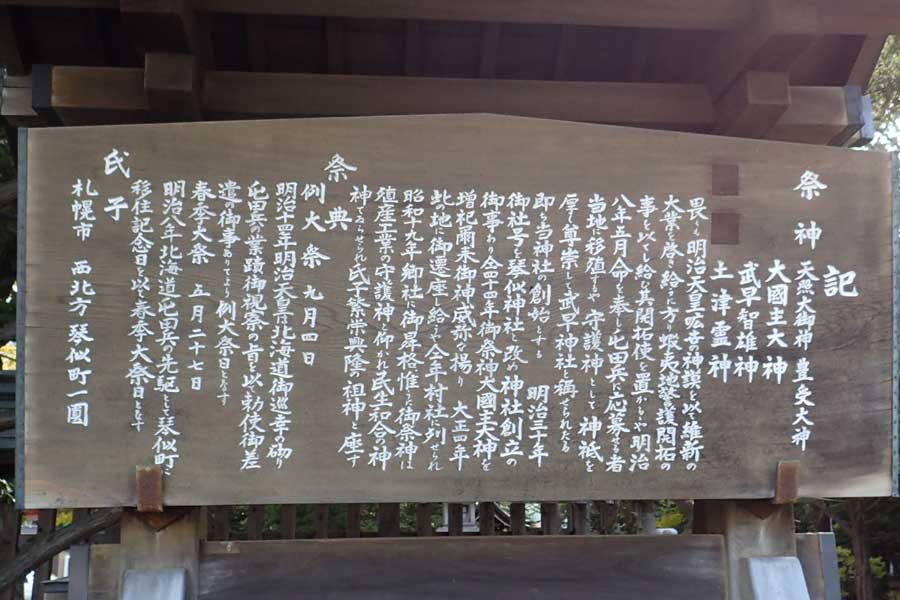 記
祭神 天照大御神 豊受大神
大國主大神
武早智雄神
土津霊神
畏くも明治天皇
大業を啓き給ふに方り蝦夷地警護開拓の
事を以てし給ひ其開拓使を置かるゝや明治
八年五月命を奉じ屯田兵に応募せる者
当地に移殖するや守護神として神祇を
厚く尊崇して武早神社と称せられたる
即ち当神社の創始とする 明治三十年
御社号を琴似神社と改め神社創立の
御事あり仝四十四年御祭神大國主大神を
増祀爾来御神威弥々揚り 大正四年
此の地に御遷座し給ふ仝年村社に列せられ
昭和十九年郷社に御昇格惟ふに御祭神は
殖産工業の守護神と仰がれ民生和合の神
神であらせられ氏子繁栄興隆の祖神と座す
祭典
例大祭 九月四日
明治十四年明治天皇北海道御巡幸の砌り
屯田兵の業蹟御視察の旨を以て勅使御差
遣の御事ありてより例大祭日となす
春季大祭 五月二十七日
明治八年北海道屯田兵の先駆として琴似町に
移住記念日を以て春季大祭日となす
氏子
札幌市 西北方 琴似町一圓